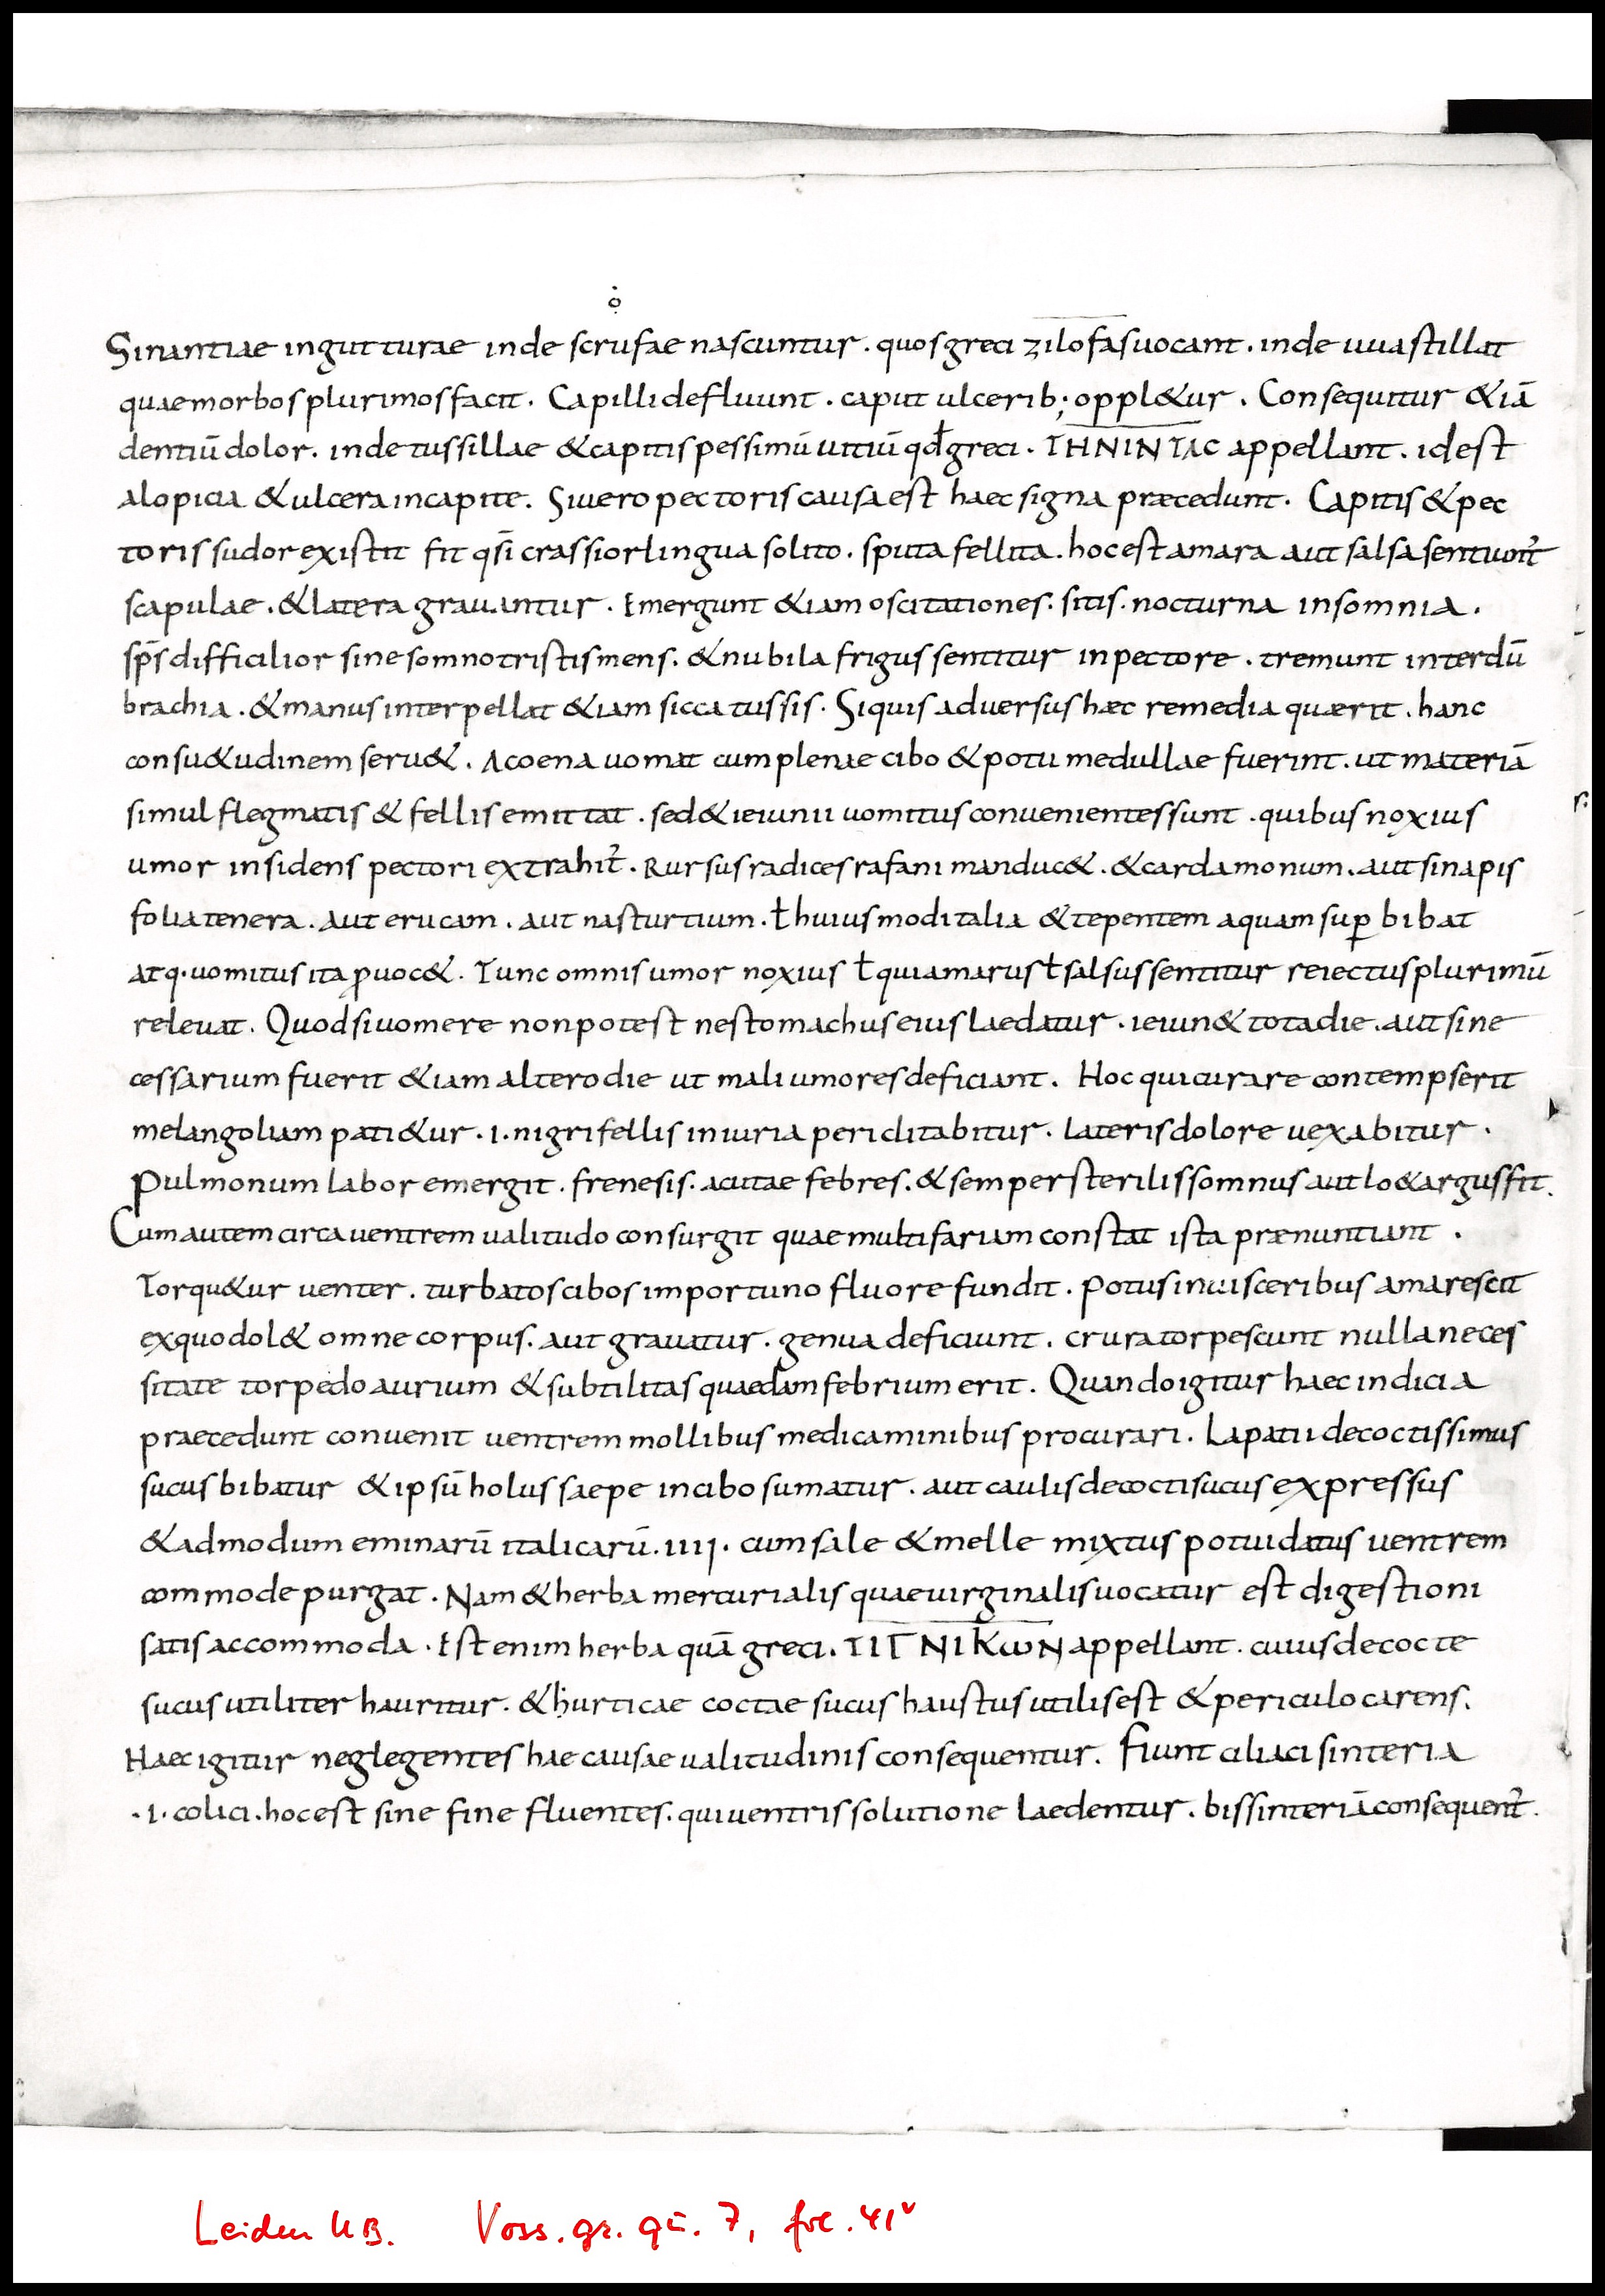 Sinantiae ingutturae inde scrufae nascuntur. quos greci zilofas uocant. inde uua stillat
quae morbos plurimos facit. Capilli defluunt. caput ulcerib; oppl&ur. Consequitur &iā
dentiū dolor. inde tussillae & capitis pessimū uitiū qđ greci. THNINTAC appellant. id est
alopicia & ulcera in capite. Si uero pectoris causa est haec signa præcedunt. Capitis & pec
toris sudor existit fit qsī crassior lingua solito. sputa fellita. hoc est amara aut salsa sentiunt̃
scapulae. & latera grauantur. Emergunt &iam oscitationes. sitis. nocturna insomnia.
sps̄ difficilior sine somno tristis mens. & nubila frigus sentitur in pectore. tremunt interdū
brachia. & manus interpellat &iam sicca tussis. Siquis aduersus hæc remedia quærit. hanc
consu&udinem seru&. A coena uomat cum plenae cibo & potu medullae fuerint. ut materiā
simul flegmatis & fellis emittat. sed & ieiunii uomitus conuenientes sunt. quibus noxius
umor insidens pectori extrahit̃. Rursus radices rafani manduc&. & cardamonum. aut sinapis
folia tenera. aut erucam. aut nasturtium. ł huiusmodi talia & tepentem aquam suꝑ bibat
atq. uomitus ita ꝓuoc&. Tunc omnis umor noxius ł qui amarus ł salsus sentitur reiectus plurimū
releuat. Quod si uomere non potest ne stomachus eius laedatur. ieiun& tota die. aut si ne
cessarium fuerit &iam altero die ut mali umores deficiant. Hoc qui curare contempserit
melangoliam pati&ur. i. nigri fellis iniuria periclitabitur. Lateris dolore uexabitur.
Pulmonum labor emergit. frenesis. acutae febres. & semper sterilis somnus aut lo&argus fit.
Cum autem circa uentrem ualitudo consurgit quae multifariam constat ista prænuntiant.
Torqu&ur uenter. turbatos cibos importuno fluore fundit. Potus in uisceribus amarescit
ex quo dol& omne corpus. aut grauatur. genua deficiunt. crura torpescunt nulla neces
sitate torpedo aurium & subtilitas quaedam febrium erit. Quando igitur haec indicia
praecedunt conuenit uentrem mollibus medicaminibus procurari. Lapatii decoctissimus
sucus bibatur & ipsū holus saepe in cibo sumatur. aut caulis decocti sucus expressus
& admodum eminarū italicarū. IIII. cum sale & melle mixtus potui datus uentrem
commode purgat. Nam & herba mercurialis quae uirginalis uocatur est digestioni
satis accommoda. Est enim herba quā greci. TIΓNIKωN appellant. cuius decocte
sucus utiliter hauritur. & hurticae coctae sucus haustus utilis est & periculo carens.
Haec igitur neglegentes hae causae ualitudinis consequentur. Fiunt ciliaci sinteria
.i. colici. hoc est sine fine fluentes. qui uentris solutione laedentur. bissinteriā consequent̃.
Leiden UB. Voss. gr. qu. 7, fol. 41v